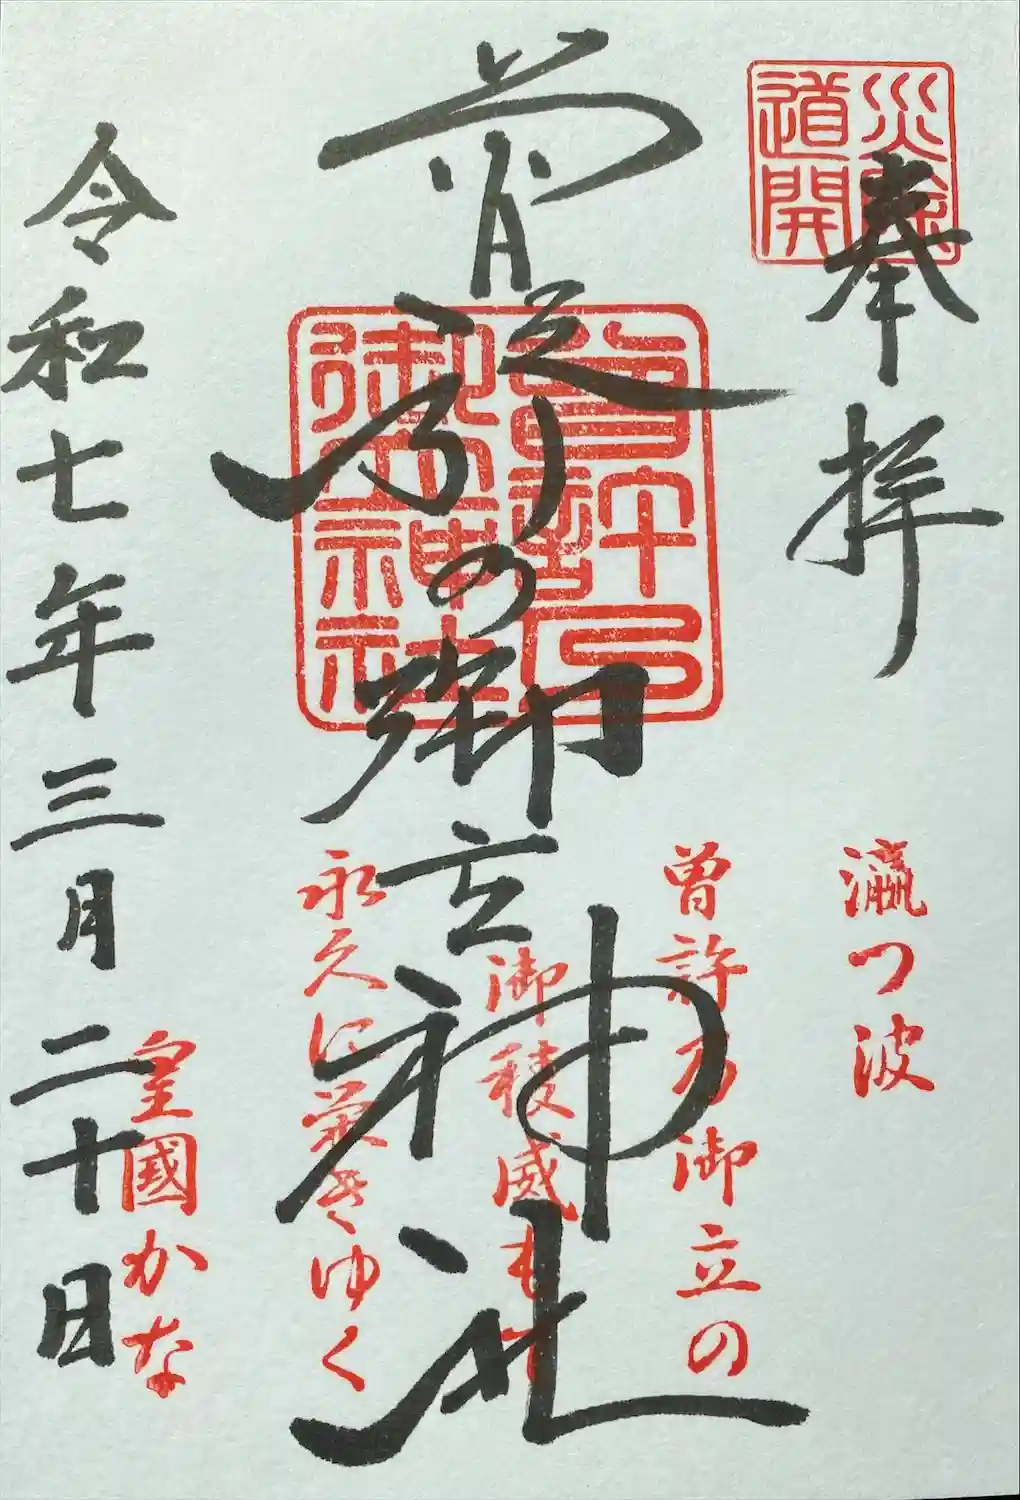 災除道開
奉拝
曾許の御立神社
曾許乃御立神社
瀛つ波
曽許乃御立の
御稜威もて
永久に栄えゆく
皇國かな
令和七年三月二十日